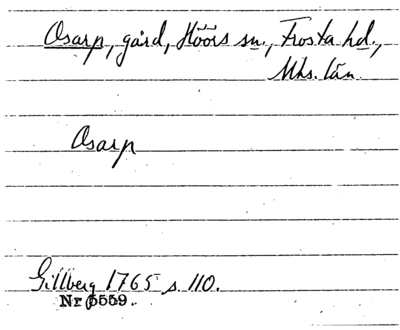 Osarp, gård, Höörs sn., Frosta hd.,
Mhs. län
Osarp
Gillberg 1765 s. 110.
Nr 5559.